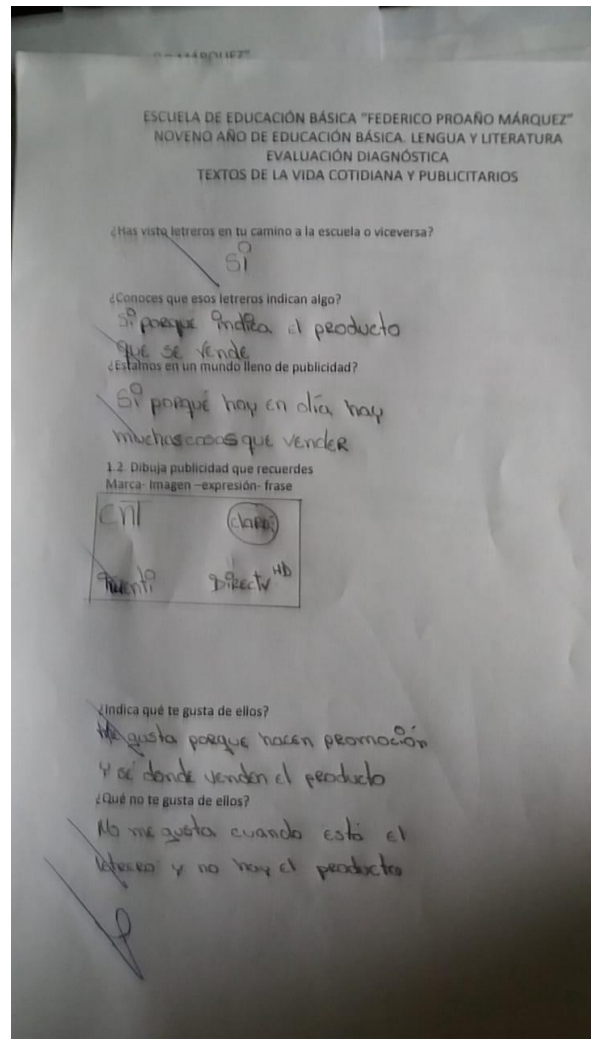 MÁRQUEZ"
ESCUELA DE EDUCACIÓN BÁSICA "FEDERICO PROAÑO MÁRQUEZ"
NOVENO AÑO DE EDUCACIÓN BÁSICA. LENGUA Y LITERATURA
EVALUACIÓN DIAGNÓSTICA
TEXTOS DE LA VIDA COTIDIANA Y PUBLICITARIOS
¿Has visto letreros en tu camino a la escuela o viceversa?
Si
¿Conoces que esos letreros indican algo?
Si porque indica el producto
que se vende
¿Estamos en un mundo lleno de publicidad?
Si porqué hoy en día, hay
muchas cosas que vender
1.2. Dibuja publicidad que recuerdes
Marca- Imagen –expresión- frase
CNT claro
tuenti Directv HD
¿Indica qué te gusta de ellos?
Me gusta porque hacen promoción
Y sé donde venden el producto
¿Qué no te gusta de ellos?
No me gusta cuando está el
letrero y no hay el producto